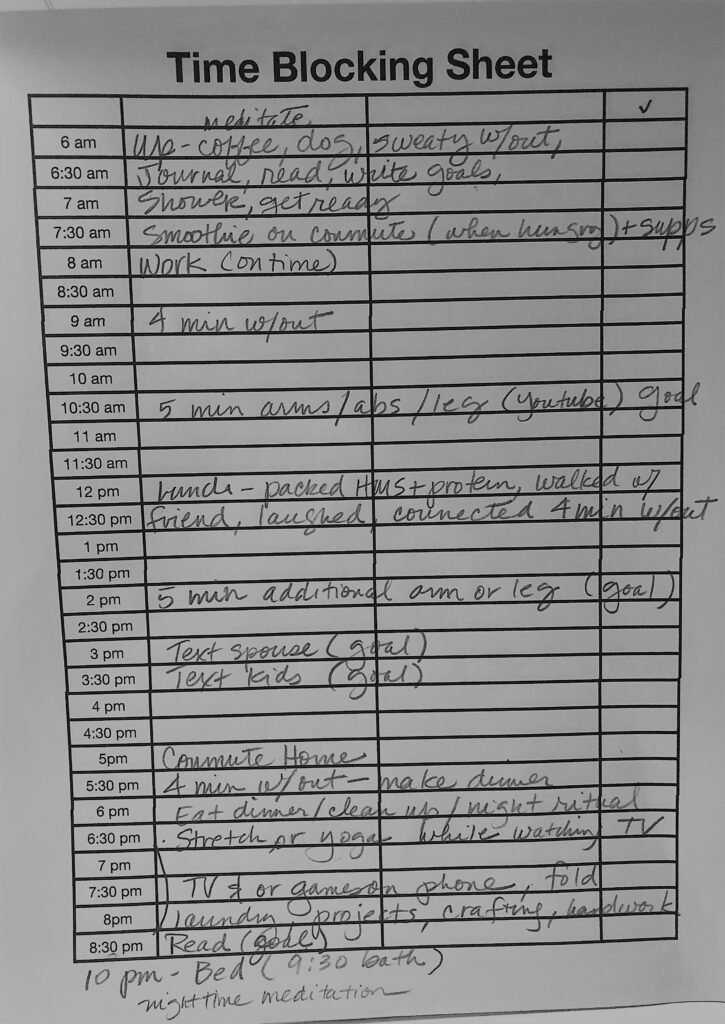 Time Blocking Sheet
meditate ✓
6 am Up - coffee, dog, sweaty w/out,
6:30 am Journal, read, write goals,
7 am Shower, get ready
7:30 am Smoothie on commute (when hungry) + supps
8 am Work (on time)
8:30 am
9 am 4 min w/out
9:30 am
10 am
10:30 am 5 min arms/abs/leg (youtube) goal
11 am
11:30 am
12 pm Lunch - packed HMS + protein, walked w/
12:30 pm friend, laughed, connected 4 min w/out
1 pm
1:30 pm
2 pm 5 min additional arm or leg (goal)
2:30 pm
3 pm Text spouse (goal)
3:30 pm Text kids (goal)
4 pm
4:30 pm
5pm Commute Home
5:30 pm 4 min w/out - make dinner
6 pm Eat dinner/clean up/night ritual
6:30 pm Stretch or yoga while watching TV
7 pm
7:30 pm TV & or games on phone, fold
8pm laundry, projects, crafting, handwork
8:30 pm Read (goal)
10 pm - Bed (9:30 bath)
nighttime meditation